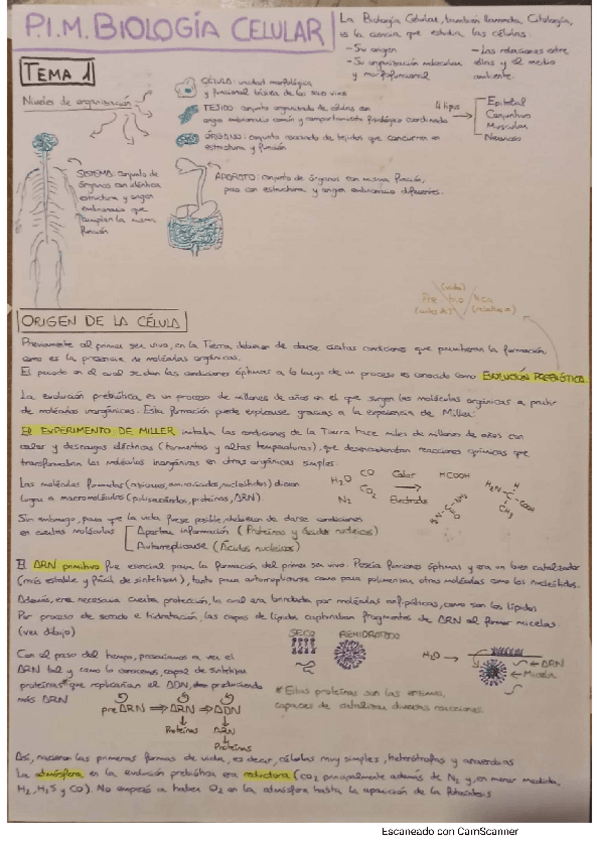 P.I.M. BIOLOGÍA CELULAR
La Biología Celular, también llamada, Citología,
es la ciencia que estudia las células:
- Su origen
- Su organización molecular
y morfofuncional
- Las relaciones entre
ellas y el medio
ambiente.
TEMA 1
Niveles de organización
CÉLULA: unidad morfológica
y funcional básica de los seres vivos
TEJIDO: conjunto organizado de células con
origen embrionario común y comportamiento fisiológico coordinado
4 tipos
Epitelial
Conjuntivo
Muscular
Nervioso
ÓRGANO: conjunto de tejidos que concurren en
estructura y función
SISTEMA: conjunto de
órganos con idéntica
estructura y origen
embrionario que
cumplen la misma
función
APARATO: conjunto de órganos con misma función,
pero con estructura y origen embrionario diferentes.
(vida)
Pre bio tica
ORIGEN DE LA CÉLULA
Previamente al primer ser vivo, en la Tierra debieron de darse ciertas condiciones que permitieran la formación
como es la presencia de moléculas orgánicas.
El periodo en el cual se dan las condiciones óptimas a lo largo de un proceso es conocido como EVOLUCIÓN PREBIÓTICA
La evolución prebiótica es un proceso de millones de años en el que surgen las moléculas orgánicas a partir
de moléculas inorgánicas. Esta formación puede explicarse gracias a la experiencia de Miller.
El EXPERIMENTO DE MILLER imitaba las condiciones de la Tierra hace miles de millones de años con
calor y descargas eléctricas (tormentas y altas temperaturas), que desencadenaban reacciones químicas que
transformaban las moléculas inorgánicas en otras orgánicas simples.
Las moléculas formadas (azúcares, aminoácidos, nucleótidos) dieron
lugar a macromoléculas (polisacáridos, proteínas, ARN).
H2O CO
CO2
N2
Calor
Electrodo
HCOOH
Sin embargo, para que la vida fuese posible, debieron de darse condiciones
en ciertas moléculas
Aportar información (Proteínas y Ácidos nucleicos)
Autorreplicarse (Ácidos nucleicos)
El ARN primitivo fue esencial para la formación del primer ser vivo. Poseía funciones óptimas y era un buen catalizador
(más estable y fácil de sintetizar), tanto para autorreplicarse como para polimerizar otras moléculas como los nucleótidos.
Además, era necesaria cierta protección, la cual era brindada por moléculas anfipáticas, como son los lípidos
Por proceso de secado e hidratación, las capas de lípidos capturaban fragmentos de ARN al formar micelas.
(ver dibujo)
SECO
REHIDRATADO
H2O
ARN
Micela
Con el paso del tiempo, pasaríamos a ver el
ARN tal y como lo conocemos, capaz de sintetizar
proteínas* que replicarían el ADN, produciendo
más ARN
* Estas proteínas son las enzimas,
capaces de catalizar diversas reacciones.
preARN ⇒ ARN ⇒ ADN
Proteínas
ARN
Proteínas
Así, nacieron las primeras formas de vida, es decir, células muy simples, heterótrofas y anaerobias
La atmósfera en la evolución prebiótica era reductora (CO2 principalmente además de N2 y, en menor medida,
H2, H2S y CO). No empezó a haber O2 en la atmósfera hasta la aparición de la fotosíntesis
Escaneado con CamScanner